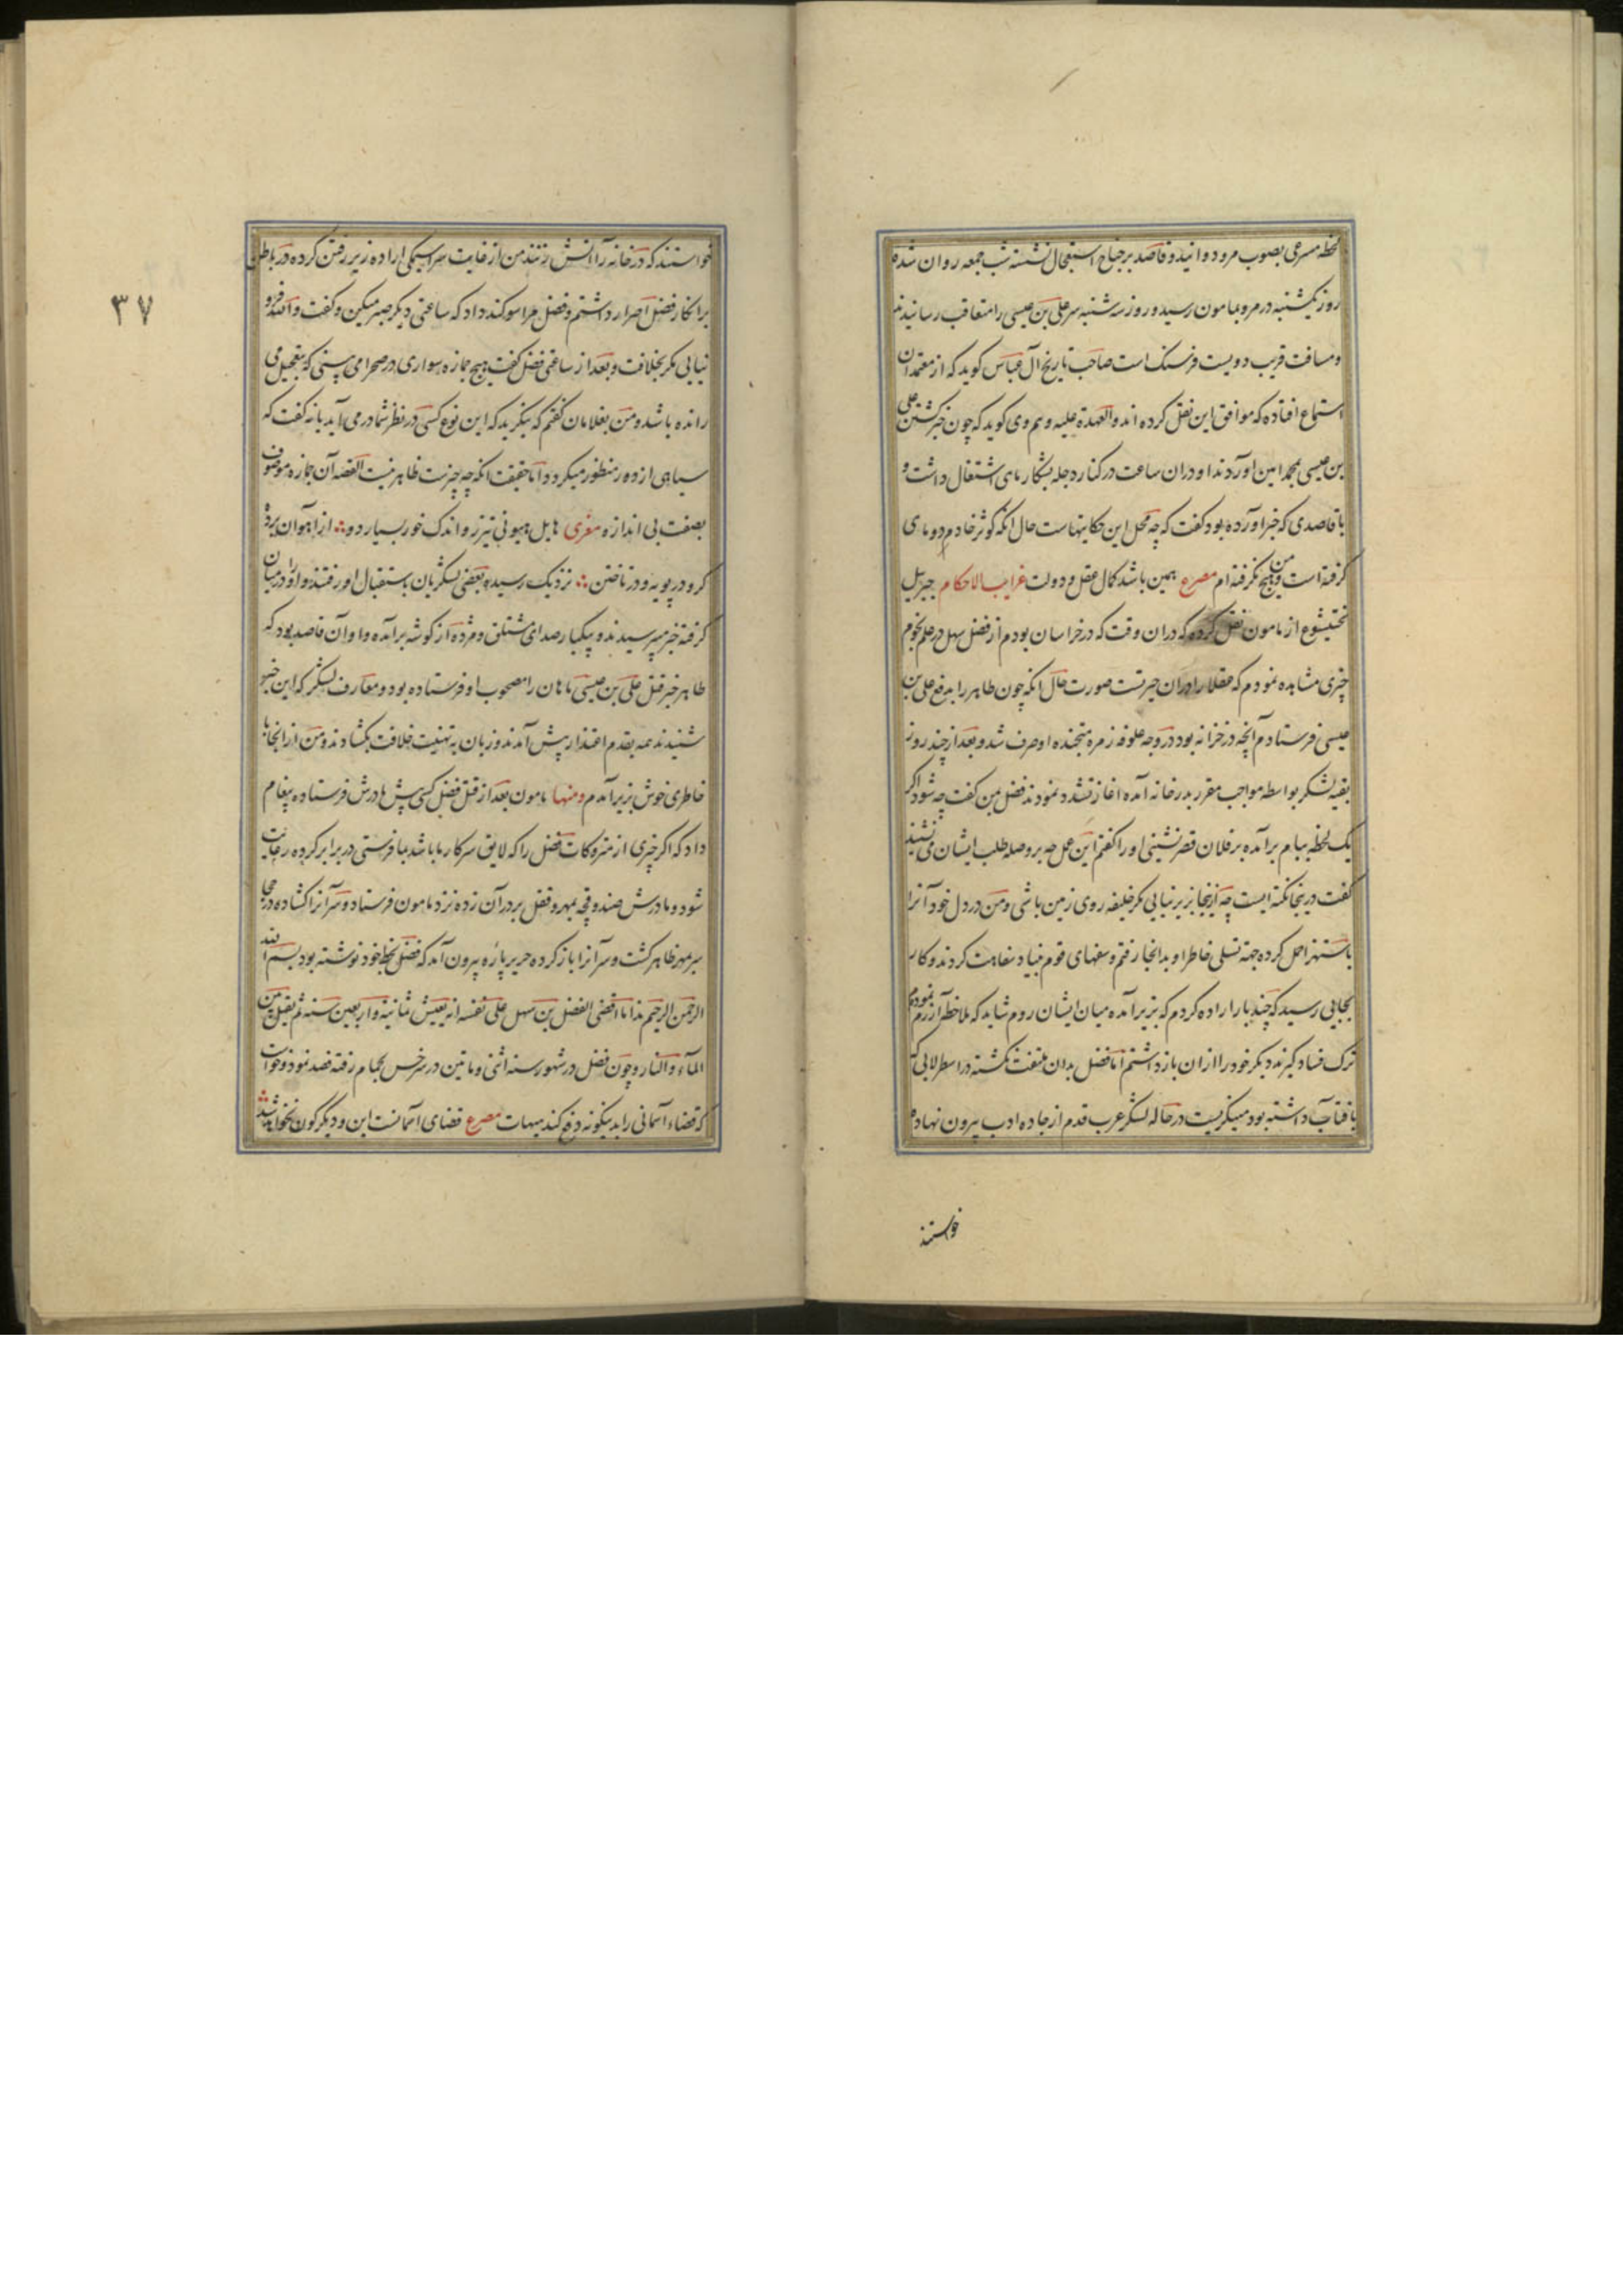 لحظه مسرعی بصوب مرو دوانید و قاصد بر جناح استعجال نشسته شب جمعه روان شده
روز یکشنبه در مرو بمامون رسید و روز سه شنبه سر علی بن عیسی را متعاقب رسانیدند
و مسافت قریب دویست فرسنک است صاحب تاریخ آل عباس کوید که از معتمدان
استماع افتاده که موافق این نقل کرده اند و العهدة علیه و هم وی کوید که چون خبر کشتن علی
بن عیسی بمحمد امین اوردند او دران ساعت در کنار دجله بشکار ماهی اشتغال داشت و
با قاصدی که خبر اورده بود کفت که چه محل این حکایتهاست حال انکه کوثر خادم دو ماهی
کرفته است و من هیچ نکرفته ام مصرع همین باشد کمال عقل و دولت غرایب الاحکام جبریل
بختیشوع از مامون نقل کرده که دران وقت که در خراسان بودم از فضل سهل در علم نجوم
چیزی مشاهده نمودم که عقلا را دران حیرتست صورت حال انکه چون طاهر را بدفع علی بن
عیسی فرستادم آنچه در خزانه بود در وجه علوفه زمره متجنده او صرف شد و بعد از چند روز
بقیه لشکر بواسطه مواجب مقرر بدرخانه آمده اغاز تشدد نمودند فضل بمن کفت چه شود اکر
یک لحظه ببام برآمده بر فلان قصر نشینی او را کفتم این محل چه بر وصله طلب ایشان می نشیند
کفت درینجا نکته ایست چه ازینجا بزیر نیایی مکر خلیفه روی زمین باشی و من در دل خود آنرا
باستهزا حمل کرده جهة تسلی خاطر او بدانجا رفتم و سفهای قوم بنیاد سفاهت کردند و کار
بجایی رسید که چند بار اراده کردم که بزیر آمده میان ایشان روم شاید که ملاحظه آزرم نموده
ترک فساد کیرند دیکر خود را ازان باز داشتم اما فضل بدان ملتفت نکشته در اسطرلابی که
با فتاب داشته بود مینکریست در حاله لشکر عرب قدم از جاده ادب بیرون نهاده
خواستند
خواستند که در خانه را آتش زنند من از غایت سراسیمکی اراده زیر رفتن کرده در باطن
بر انکار فضل اصرار داشتم و فضل مرا سوکند داد که ساعتی دیکر صبر میکن و کفت والله فرو
نیایی مکر بخلافت و بعد از ساعتی فضل کفت هیچ جمازه سواری در صحرا می بینی که بتعجیل می
رانده باشد و من بغلامان کفتم که بنکرید که این نوع کسی در نظر شما در می آید یا نه کفت که
سیاهی از دور منظور میکردد اما حقیقت انکه چه چیزست ظاهر نیست القصه آن جمازه موصوف
بصفت بی اندازه مغزی هابل هیونی تیزرو اندک خور بسیار دو ∴ از اهوان برده
کرو در پویه و در تاختن ∴ نزدیک رسیده بعضی لشکریان باستقبال او رفتند و او را در میان
کرفته خبر میپرسیدند و بیکبار صدای شتلق و مژده از کوشه برآمده و او آن قاصد بود که
طاهر خبر قتل علی بن عیسی ماهان را مصحوب او فرستاده بود و معارف لشکر که این خبر
شنیدند همه بقدم اعتذار پیش آمدند و زبان به تهنیت خلافت بکشادند و من از انجا با
خاطری خوش بزیر آمدم و منها مامون بعد از قتل فضل کسی پیش مادرش فرستاده پیغام
داد که اکر چیزی از متروکات فضل را که لایق سرکار ما باشد بما فرستی در برابر کرده رعایت
شود و مادرش صندوقچه بمهر و قفل بر در آن زده نزد مامون فرستاد و سر آنرا کشاده درجی
سر مهر ظاهر کشت و سر آنرا باز کرده حریر پاره بیرون آمد که فضل بخط خود نوشته بود بسم الله
الرحمن الرحیم هذا ما اقضی الفضل بن سهل علی نفسه انه یعیش ثمانیة و اربعین سنه ثم یقتل بین
المآء و النار و چون فضل در شهور سنه اثنی و مایتین در سرخس بحمام رفته فصد نمود و خواست
که قضاء آسمانی را بدینکونه دفع کند هیهات مصرع قضای آسمانست این و دیکرکون نخواهد شد
۳۷